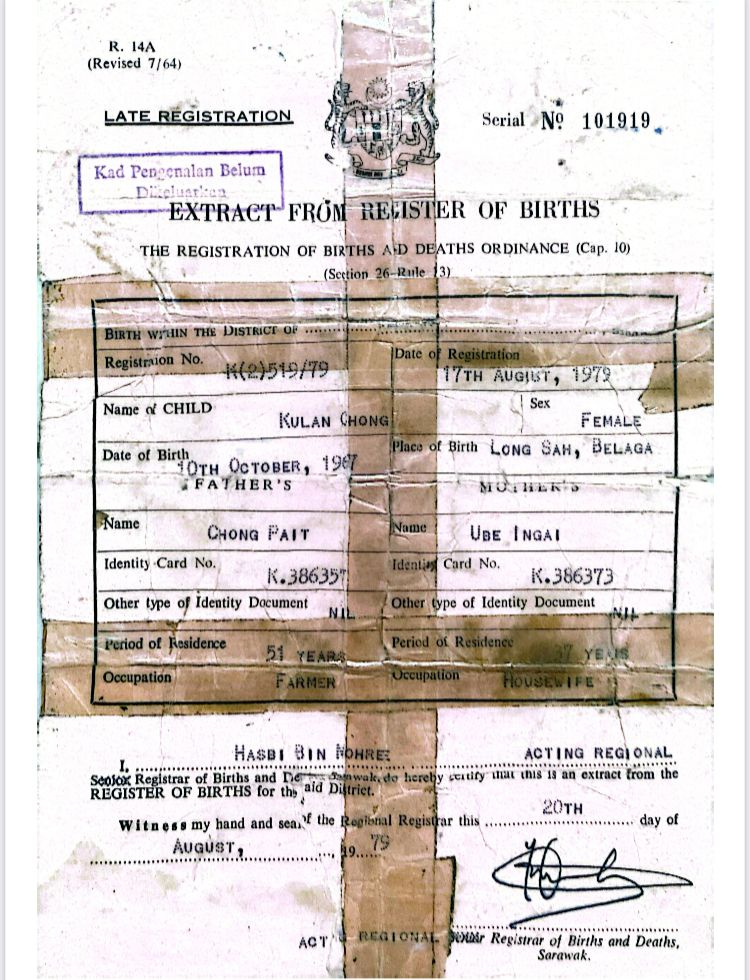 R. 14A
(Revised 7/64)
LATE REGISTRATION
Serial Nº 101919
Kad Pengenalan Belum
Dikeluarkan
EXTRACT FROM REGISTER OF BIRTHS
THE REGISTRATION OF BIRTHS AND DEATHS ORDINANCE (Cap. 10)
(Section 26-Rule 13)
BIRTH WITHIN THE DISTRICT OF
Registraion No. K(2)519/79
Date of Registration 17TH AUGUST, 1979
Name of CHILD KULAN CHONG
Sex FEMALE
Date of Birth 10TH OCTOBER, 1967
Place of Birth LONG SAH, BELAGA
FATHER'S
MOTHER'S
Name CHONG PAIT
Name UBE INGAI
Identity Card No. K.386357
Identity Card No. K.386373
Other type of Identity Document NIL
Other type of Identity Document NIL
Period of Residence 51 YEARS
Period of Residence 37 YEARS
Occupation FARMER
Occupation HOUSEWIFE
I, HASBI BIN ACTING REGIONAL
Registrar of Births and Sarawak, do hereby certify that this is an extract from the
REGISTER OF BIRTHS for the aid District.
Witness my hand and seal of the Regional Registrar this 20TH day of
AUGUST, 19 79
ACT REGIONAL Registrar of Births and Deaths,
Sarawak.